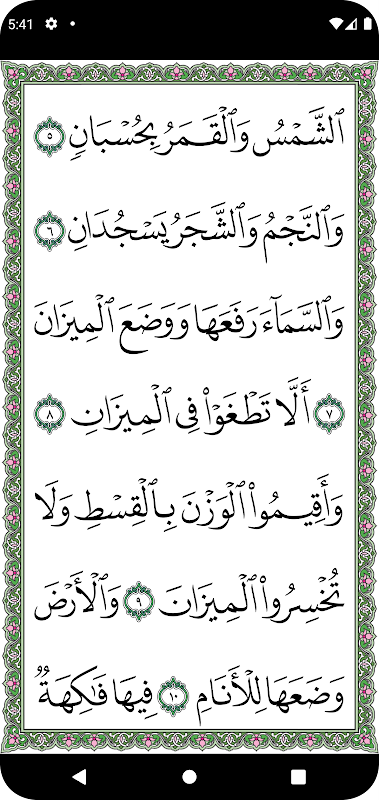 5:41
ٱلشَّمْسُ وَٱلْقَمَرُ بِحُسْبَانٖ ٥
وَٱلنَّجْمُ وَٱلشَّجَرُ يَسْجُدَانِ ٦
وَٱلسَّمَآءَ رَفَعَهَا وَوَضَعَ ٱلْمِيزَانَ
٧ أَلَّا تَطْغَوْا۟ فِى ٱلْمِيزَانِ ٨
وَأَقِيمُوا۟ ٱلْوَزْنَ بِٱلْقِسْطِ وَلَا
تُخْسِرُوا۟ ٱلْمِيزَانَ ٩ وَٱلْأَرْضَ
وَضَعَهَا لِلْأَنَامِ ١٠ فِيهَا فَٰكِهَةٌ